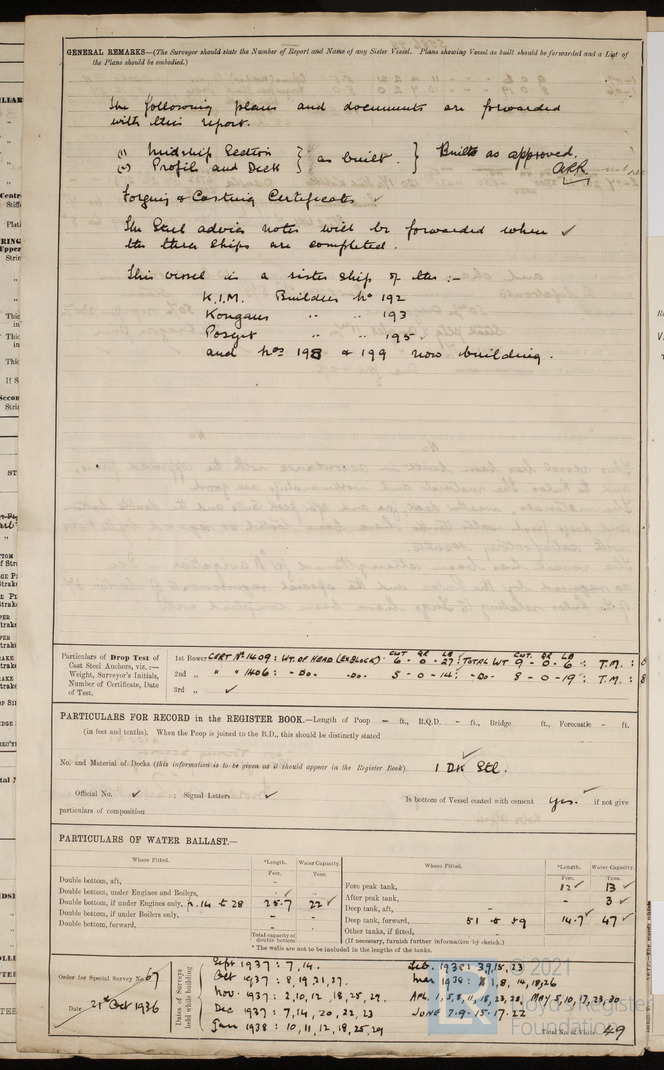 GENERAL REMARKS—(The Surveyor should state the Number of Report and Name of any Sister Vessel. Plans showing Vessel as built should be forwarded and a List of
the Plans should be embodied.)
The following plans and documents are forwarded
with this report.
(1) Midship Section } as built. } Built as approved.
(2) Profile and Deck
Forging & Casting Certificates ✓
The Steel advice notes will be forwarded when ✓
the three ships are completed.
This vessel is a sister ship of the :-
K.I.M. Builders No 192
Kongaus " " 193
Posejt " " 195
and Nos 198 & 199 now building.
Particulars of Drop Test of
Cast Steel Anchors, viz.:—
Weight, Surveyor's Initials,
Number of Certificate, Date
of Test.
CWT QR LB CWT. QR LB
1st Bower CERT No. 1409: WT. OF HEAD (EX BLOCK) 6 - 0 - 27: TOTAL WT 9 - 0 - 6: T.M.:
2nd " " " 1406: -Do- -Do- 5 - 0 - 14: -Do- 8 - 0 - 19: T.M.: 8
3rd " ✓
PARTICULARS FOR RECORD in the REGISTER BOOK.—Length of Poop - ft., R.Q.D. - ft., Bridge ft., Forecastle - ft.
(in feet and tenths). When the Poop is joined to the B.D., this should be distinctly stated
No. and Material of Decks (this information is to be given as it should appear in the Register Book) 1 DK Stl.
Official No. ✓ ; Signal Letters ✓ Is bottom of Vessel coated with cement yes. if not give
particulars of composition
PARTICULARS OF WATER BALLAST.—
Where Fitted. *Length. Water Capacity. Where Fitted. *Length. Water Capacity.
Feet. Tons. Feet. Tons.
Double bottom, aft, - -
Double bottom, under Engines and Boilers, - -
Double bottom, if under Engines only, fr. 14 to 28 25.7 22 ✓
Double bottom, if under Boilers only, - -
Double bottom, forward, - -
Total capacity of
double bottom
Fore peak tank, 12 ✓ 13 ✓
After peak tank, - 3 ✓
Deep tank, aft, - -
Deep tank, forward, 51 to 59 14.7 ✓ 47 ✓
Other tanks, if fitted, - -
(If necessary, furnish further information by sketch.)
* The wells are not to be included in the lengths of the tanks.
Order for Special Survey No. 67
Date 21st Oct 1936
Dates of Surveys
held while building
Sept 1937: 7, 14.
Oct 1937: 8, 19, 21, 27.
Nov: 1937: 2, 10, 12, 18, 25, 29.
Dec 1937: 7, 14, 20, 22, 23
Jan 1938: 10, 11, 12, 18, 25, 29
Feb. 1938: 3, 9, 15, 23
Mar 1938: 1, 8, 14, 18, 26
APL. 1, 5, 8, 11, 18, 23, 28, MAY 5, 10, 17, 23, 30
JUNE 7. 9. 15. 17. 22
Total No. of Visits 49
© 2021
Lloyd's Register
Foundation